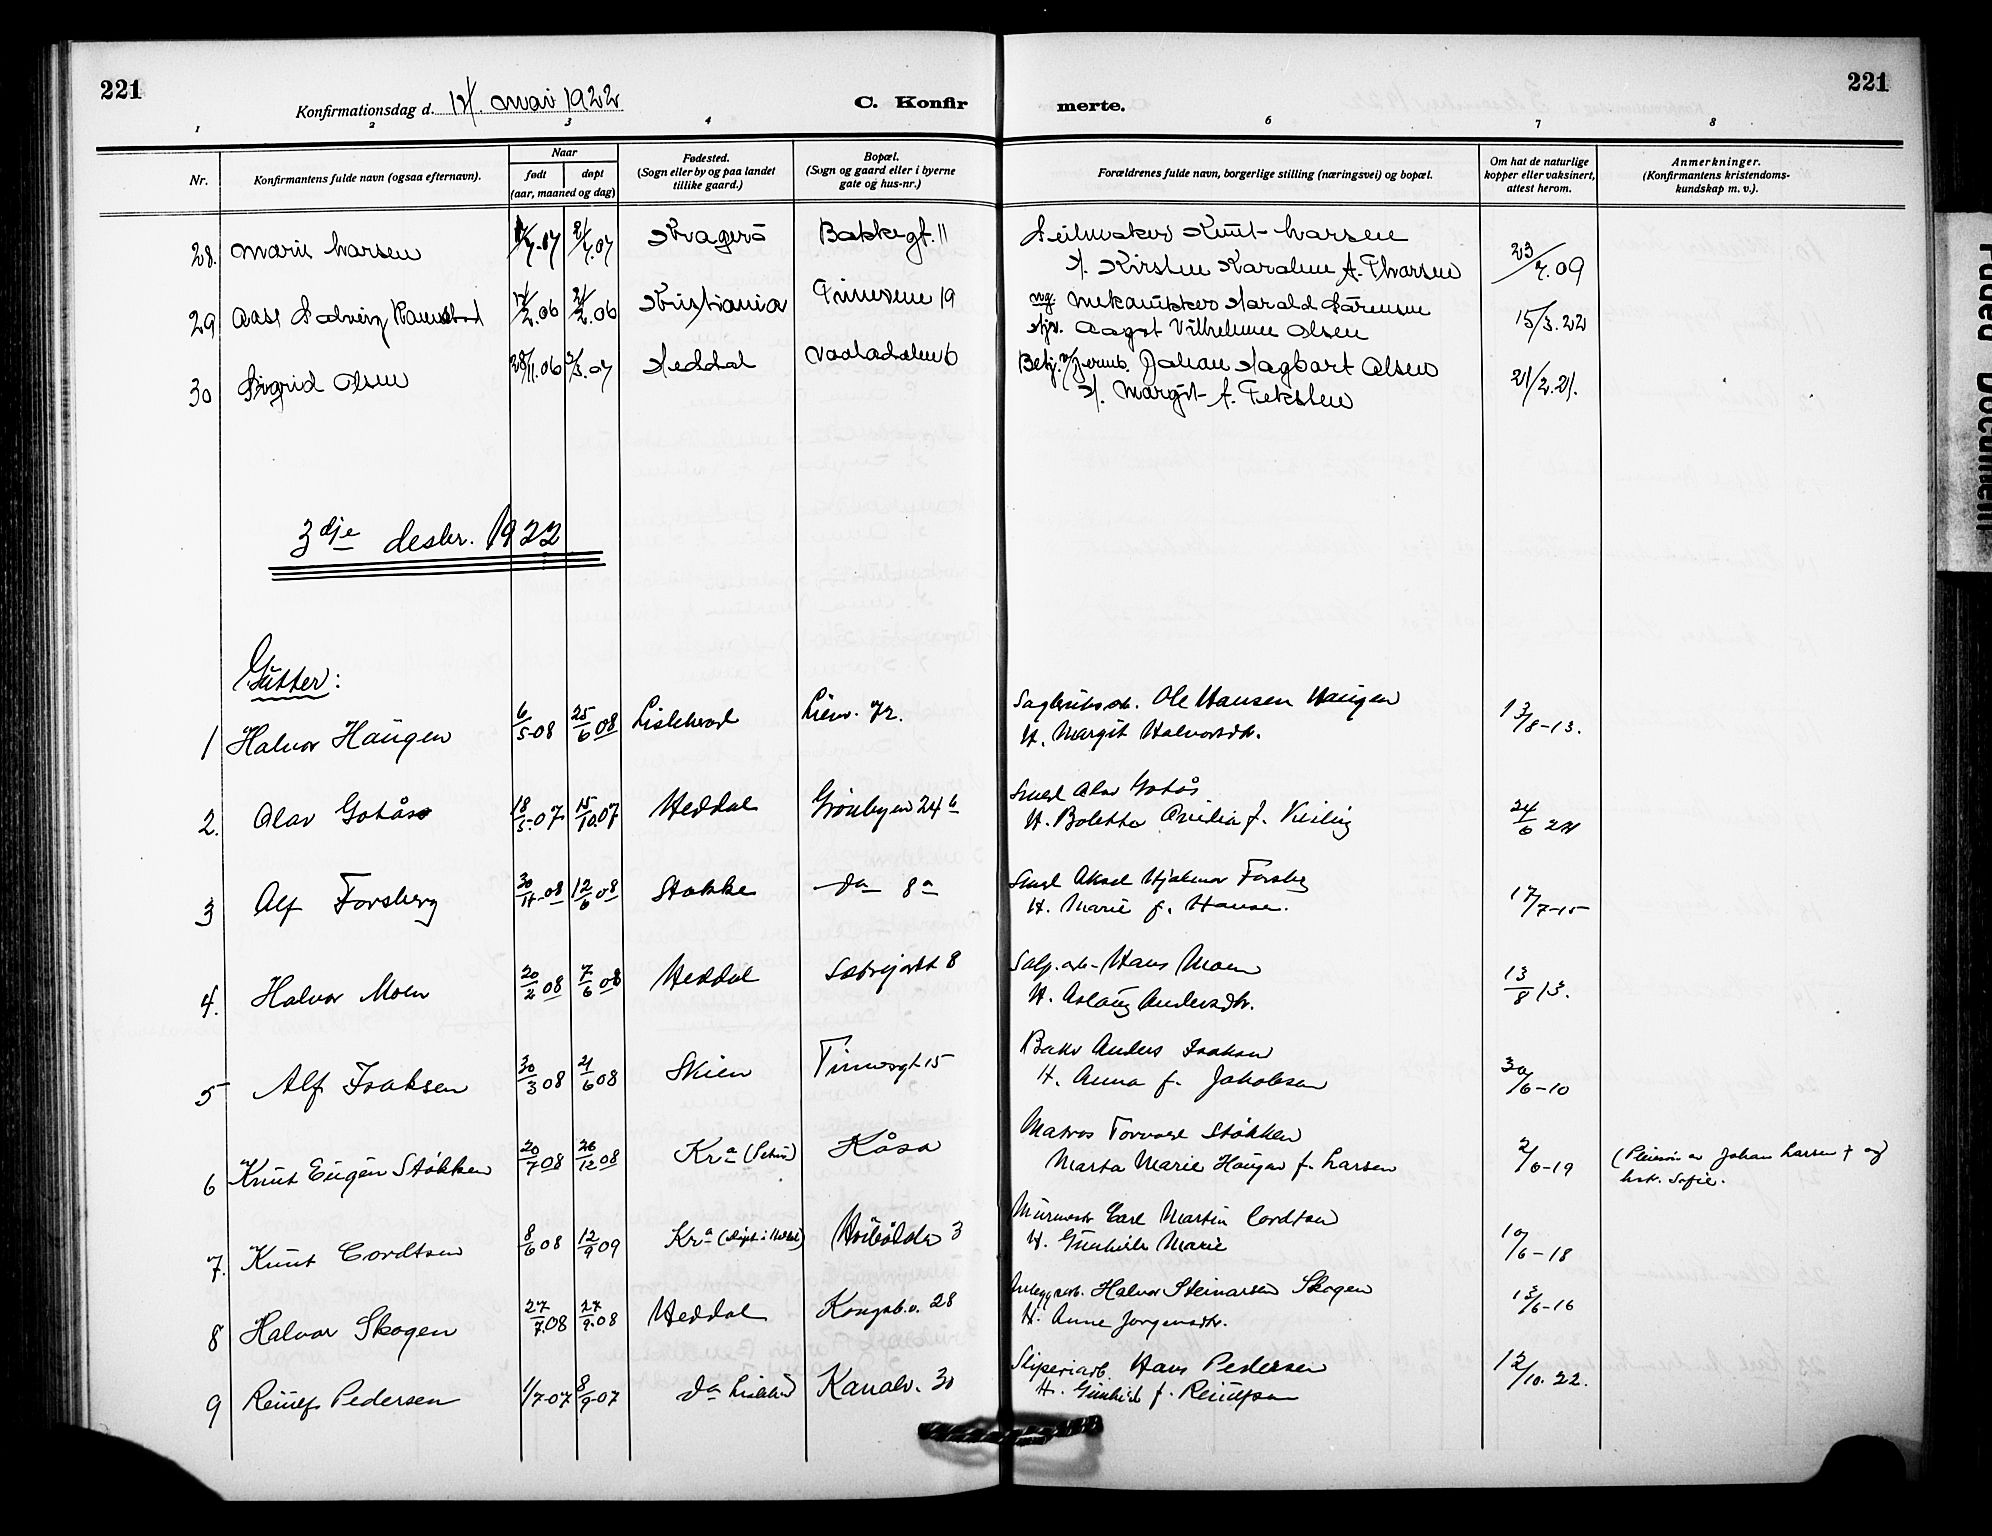 221
Konfirmationsdag d. mai 1922
C. Konfirmerte.
221
1 2 3 4 6 7 8
Nr.
Konfirmantens fulde navn (ogsaa efternavn).
Naar
født døpt
(aar, maaned og dag)
Fødested.
(Sogn eller by og paa landet
tillike gaard.)
Bopæl.
(Sogn og gaard eller i byerne
gate og hus-nr.)
Forældrenes fulde navn, borgerlige stilling (næringsvei) og bopæl.
Om hat de naturlige
kopper eller vaksinert,
attest herom.
Anmerkninger.
(Konfirmantens kristendoms-
kundskap m. v.).
28. Marie Larsen Kragerö Bakkegt. 11 Knut Larsen 23/7.09
H. Kirsten Karoline A. Tharsen
29 Aase Solveig 2.06 2.06 Kristiania 19 mekaniker Harald Sörensen 15/3.22
Aagot Vilhelmine Olsen
30 Sigrid Olsen 28/11.06 3.07 Heddal Vaaladalen 6 Johan Dagbart Olsen 21/2.21.
H. Margit A.
3dje desbr. 1922
Gutter:
1 Halvor Haugen 6/5-08 25/6 08 Lisleherad Lienv. 72. Ole Hansen Haugen 13/8-13.
H. Margit Halvorsdtr.
2. Olav Gotås 18/5-07 15/10.07 Heddal Grönbyen 24 b Smed Olav Gotås 24/6 22
H. Boletta f.
3 Alf Forsberg 30/4-08 12/6 08 Stokke da 8 a Smed Aksel Hjalmar Forsbg 17/7-15
H. Marie f. Hansen.
4. Halvor Moen 20/2 08 7/6 08 Heddal Sætrejordet 8 Salp.arb- Hans Moen 13/8 13.
H. Aslaug Andersdtr.
5 Alf Isaksen 30/3 08 21/6 08 Skien Tinnesgt 15 Baker Anders Isaksen 30/6-10
H. Anna f. Jakobsen
6 Knut Eugen Stökken 20/7 08 26/12 08 Kr a Kåsa Matros Torvald Stökken 2/6-19 Johan Larsen † og
Marta Marie Haugen f. Larsen hst. Sofie.
7. Knut Cordtsen 8/6 08 12/9 09 Kr a (döpt i Heddal) 3 Murmestr Carl Martin Cordtsen 6-18
H. Gunhild Marie
8 Halvor Skogen 27/7.08 27/9.08 Heddal Kongsb.v. 28 Anleggsarb. Halvor Steinarsen Skogen 13/6-16
H. Anne Jørgensdtr.
9 Reiulf Pedersen 1/7-07 8/9-07 da Kanalv. 30 Sliperiarb. Hans Pedersen 12/10. 22.
H. Gunhild f. Reiulfsen
Faded Document